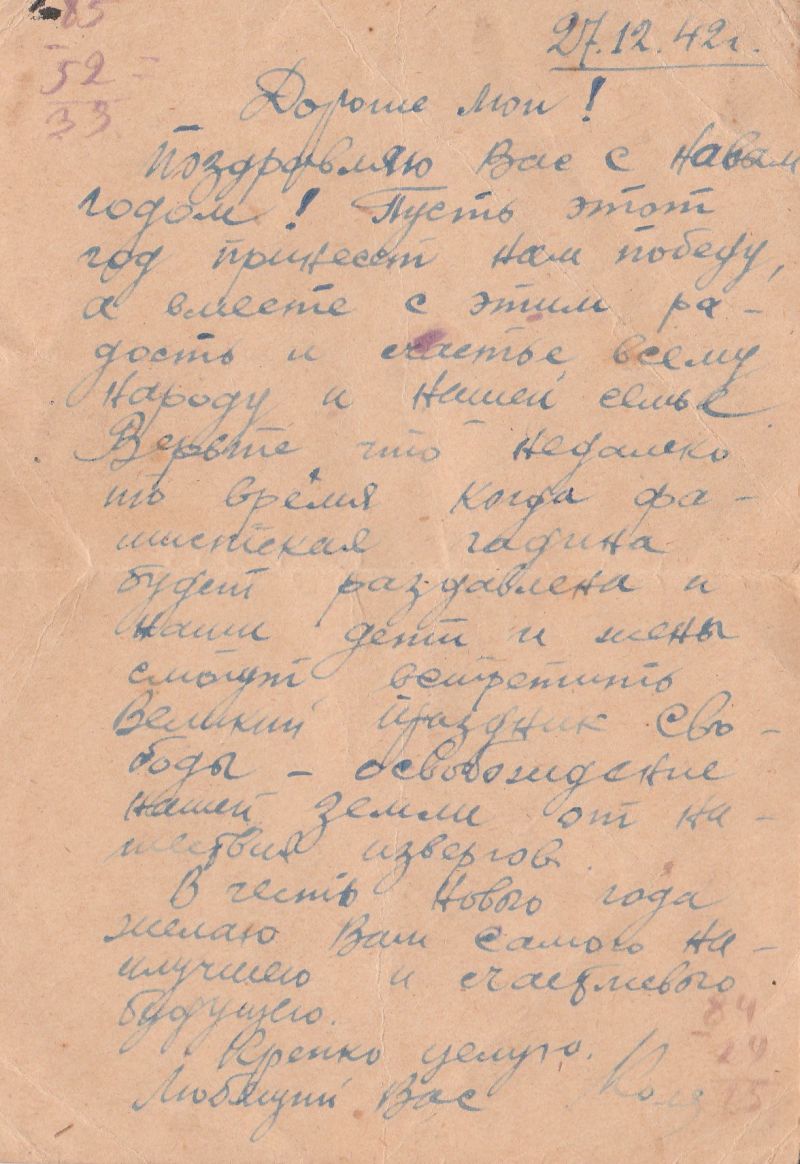 85
- 52 =
33
27.12.42 г.
Дорогие мои!
Поздравляю Вас с Новым
годом! Пусть этот
год принесет нам победу,
а вместе с этим ра-
дость и счастье всему
народу и нашей семье.
Верьте что недалеко
то время когда фа-
шистская гадина
будет раздавлена и
наши дети и жены
смогут встретить
Великий праздник сво-
боды - освобождение
нашей земли от на-
шествия извергов.
В честь Нового года
желаю Вам самого на-
илучшего и счастливого
будущего.
Крепко целую.
Любящий Вас Коля
- 84
29